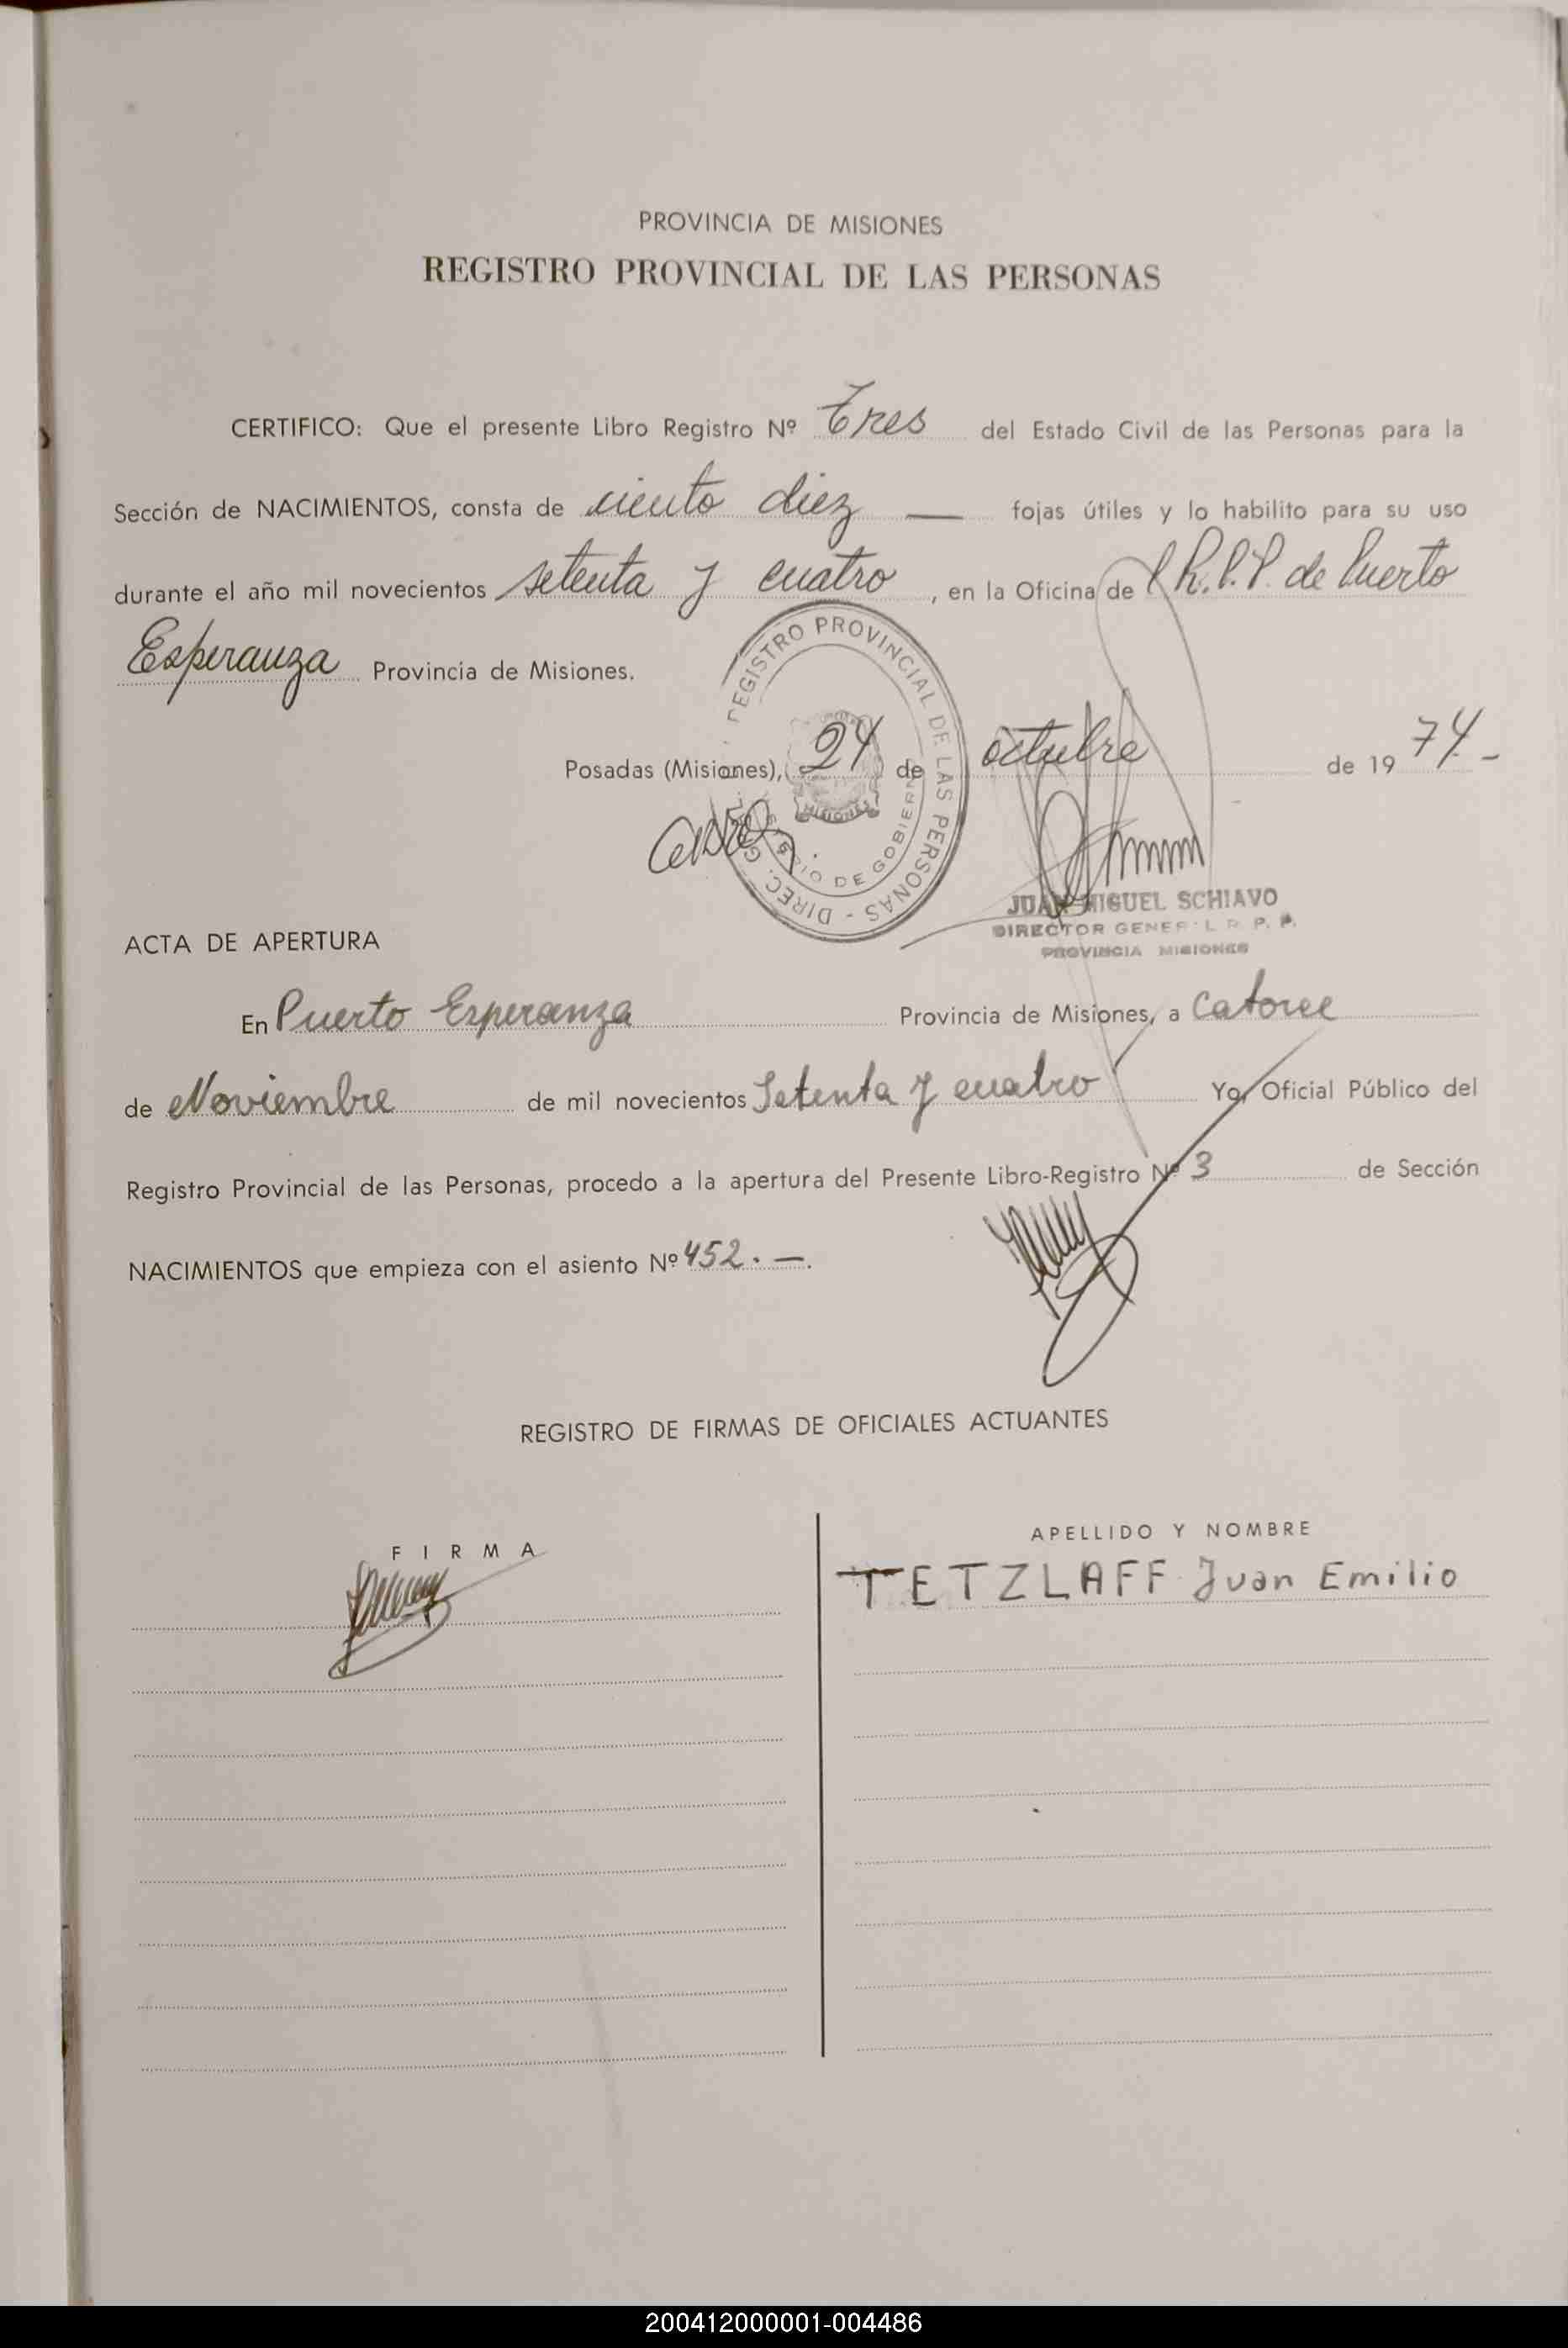 PROVINCIA DE MISIONES
REGISTRO PROVINCIAL DE LAS PERSONAS
CERTIFICO: Que el presente Libro Registro Nº Tres del Estado Civil de las Personas para la
Sección de NACIMIENTOS, consta de ciento diez — fojas útiles y lo habilito para su uso
durante el año mil novecientos setenta y cuatro, en la Oficina de R.P.P. de Puerto
Esperanza Provincia de Misiones.
REGISTRO PROVINCIAL DE LAS PERSONAS - DIREC. GRAL.
DE GOBIERNO
MISIONES
Posadas (Misiones), 24 de octubre de 1974.-
JUAN MIGUEL SCHIAVO
DIRECTOR GENERAL R. P. P.
PROVINCIA MISIONES
ACTA DE APERTURA
En Puerto Esperanza Provincia de Misiones, a Catorce
de Noviembre de mil novecientos Setenta y cuatro Yo, Oficial Público del
Registro Provincial de las Personas, procedo a la apertura del Presente Libro-Registro Nº 3 de Sección
NACIMIENTOS que empieza con el asiento Nº 452.—.
REGISTRO DE FIRMAS DE OFICIALES ACTUANTES
FIRMA
APELLIDO Y NOMBRE
TETZLAFF Juan Emilio
200412000001-004486